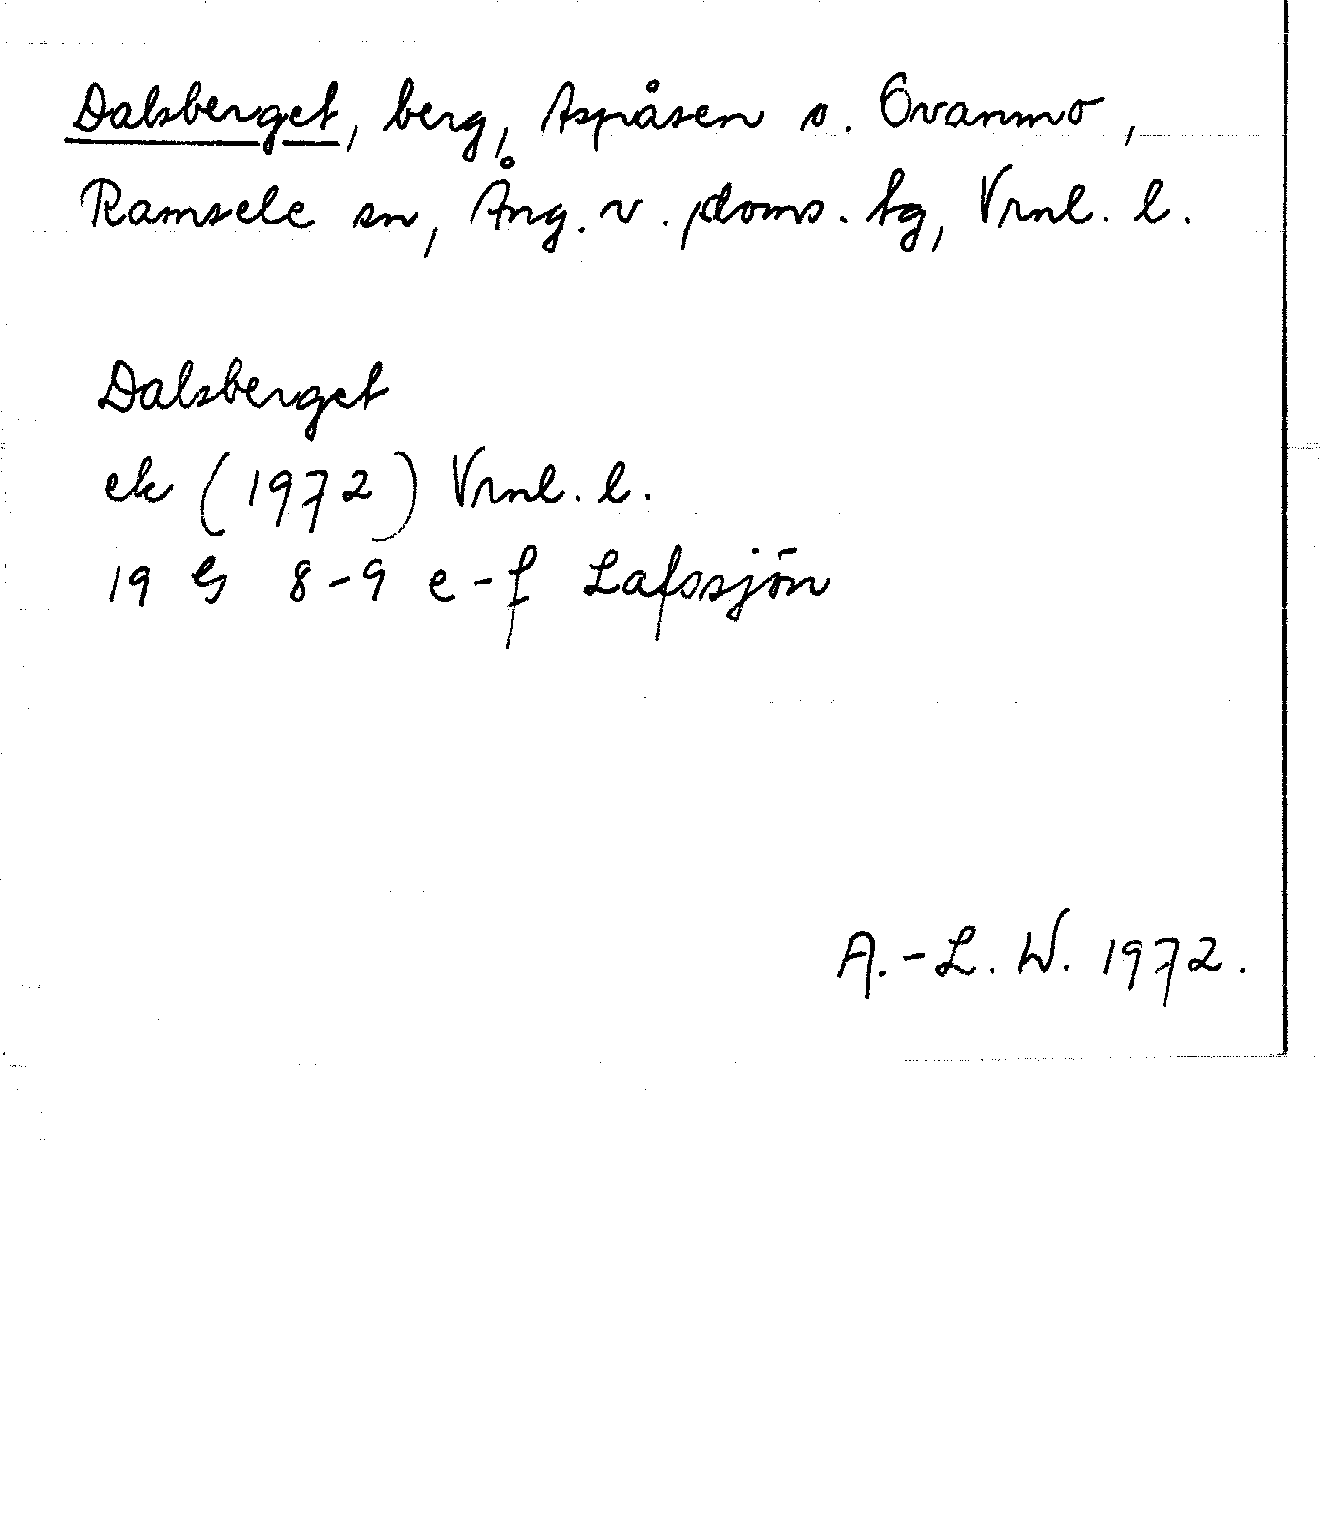 Dalsberget, berg, Aspåsen o. Ovanmo,
Ramsele sn, Ång. v. doms. tg, Vrnl. l.
Dalsberget
ek (1972) Vrnl. l.
19 G 8-9 e-f Lafssjön
A.-L. W. 1972.